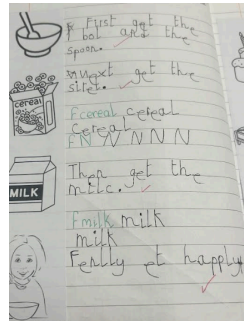 First get the
bol and the
spoon.
nuext get the
cereal
stret.
Fcereal cereal
Cereal
FN N N N N
Then get the
milc.
MILK
Fmilk milk
milk
Fenlly et happly